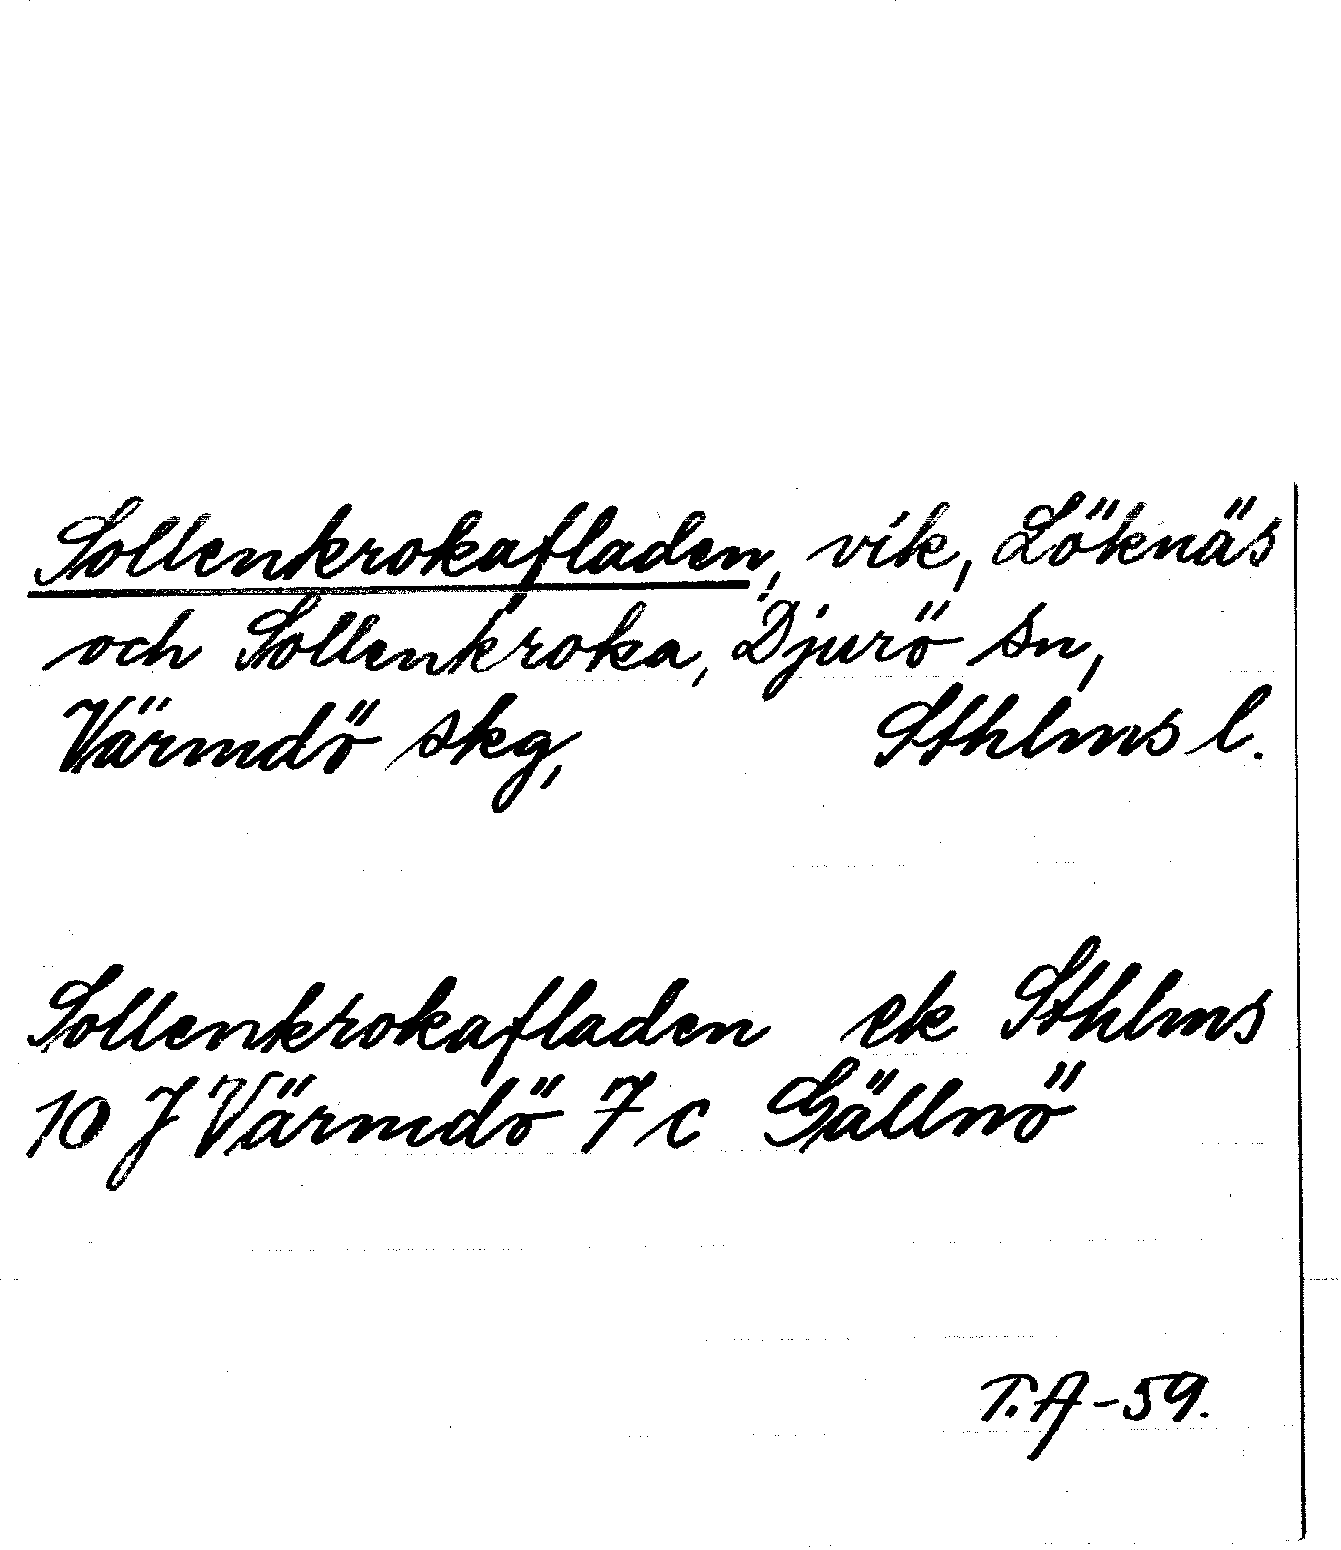 Sollenkrokafladen, vik, Löknäs
och Sollenkroka, Djurö sn,
Värmdö skg, Sthlms l.
Sollenkrokafladen ek Sthlms
10 J Värmdö 7 c Gällnö
T.A-59.